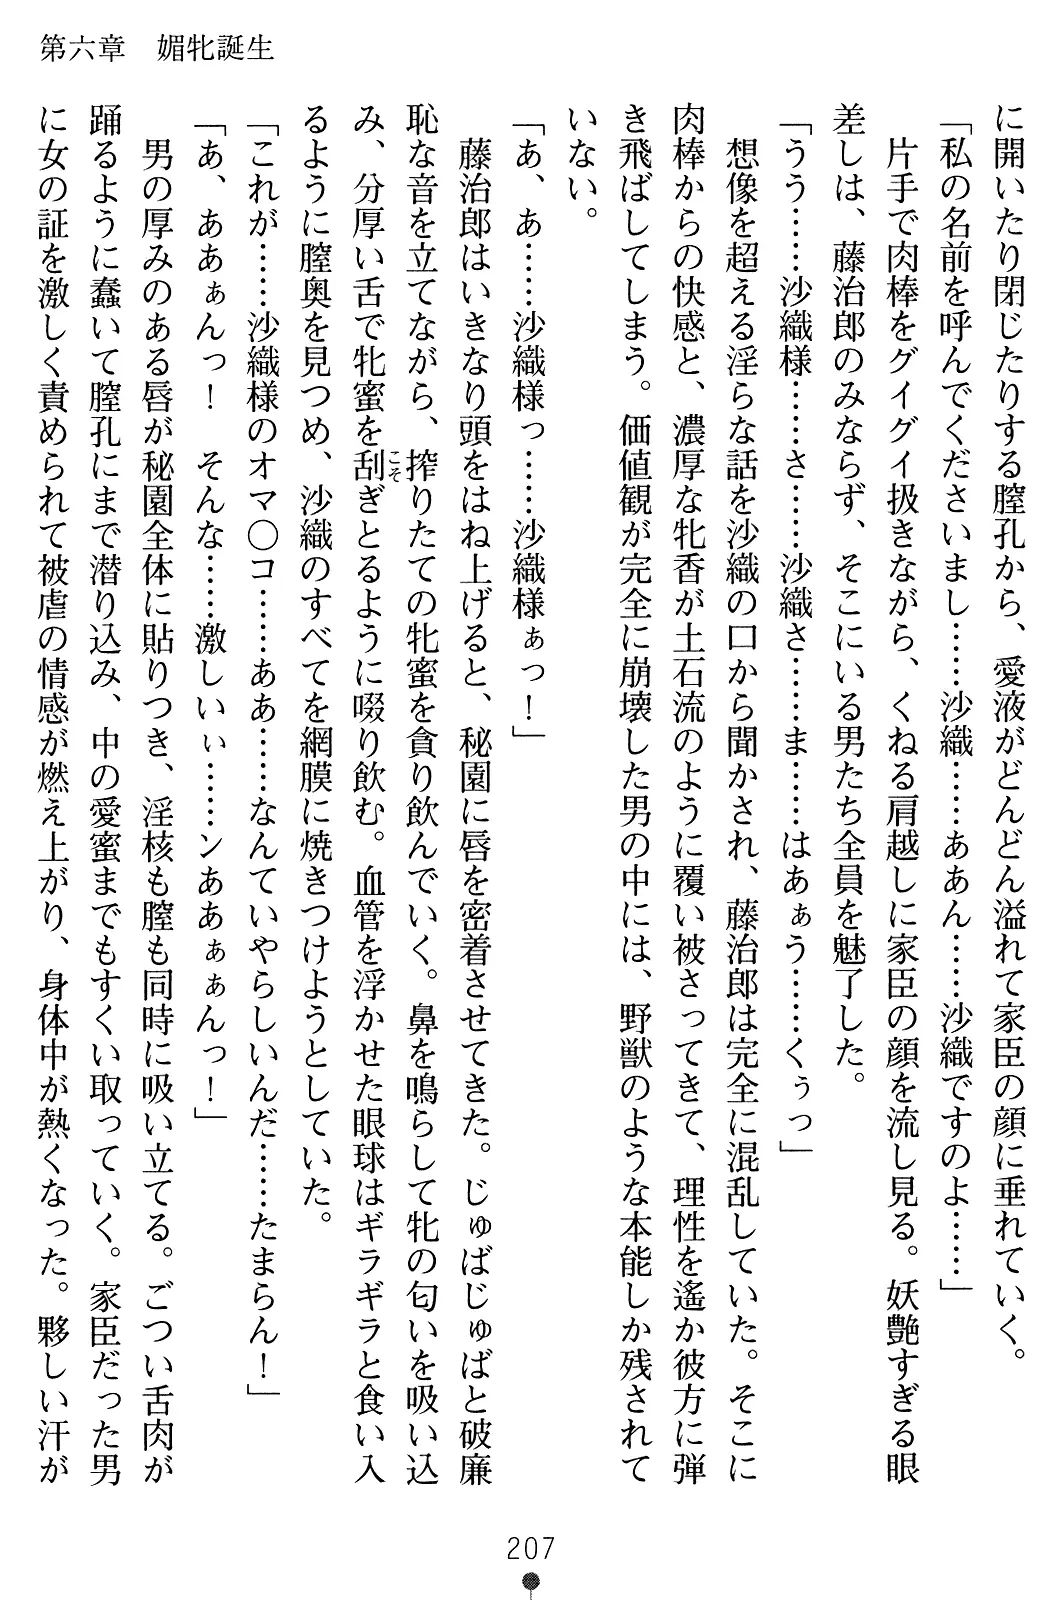 第六章　媚牝誕生
に開いたり閉じたりする膣孔から、愛液がどんどん溢れて家臣の顔に垂れていく。
「私の名前を呼んでくださいまし……沙織……ああん……沙織ですのよ……」
片手で肉棒をグイグイ扱きながら、くねる肩越しに家臣の顔を流し見る。妖艶すぎる眼
差しは、藤治郎のみならず、そこにいる男たち全員を魅了した。
「うう……沙織様……さ……沙織さ……ま……はあぁう……くぅっ」
想像を超える淫らな話を沙織の口から聞かされ、藤治郎は完全に混乱していた。そこに
肉棒からの快感と、濃厚な牝香が土石流のように覆い被さってきて、理性を遙か彼方に弾
き飛ばしてしまう。価値観が完全に崩壊した男の中には、野獣のような本能しか残されて
いない。
「あ、あ……沙織様っ……沙織様ぁっ！」
藤治郎はいきなり頭をはね上げると、秘園に唇を密着させてきた。じゅばじゅばと破廉
恥な音を立てながら、搾りたての牝蜜を貪り飲んでいく。鼻を鳴らして牝の匂いを吸い込
み、分厚い舌で牝蜜を刮こそぎとるように啜り飲む。血管を浮かせた眼球はギラギラと食い入
るように膣奥を見つめ、沙織のすべてを網膜に焼きつけようとしていた。
「これが……沙織様のオマ〇コ……ああ……なんていやらしいんだ……たまらん！」
「あ、ああぁんっ！　そんな……激しいぃ……ンああぁぁんっ！」
男の厚みのある唇が秘園全体に貼りつき、淫核も膣も同時に吸い立てる。ごつい舌肉が
踊るように蠢いて膣孔にまで潜り込み、中の愛蜜までもすくい取っていく。家臣だった男
に女の証を激しく責められて被虐の情感が燃え上がり、身体中が熱くなった。夥しい汗が
207